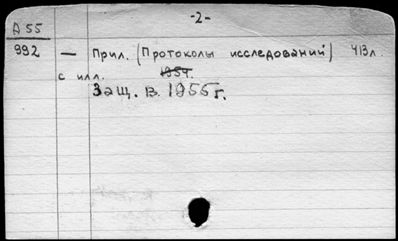 -2-
Д 55
992 — Прил. (Протоколы исследований) 413л.
с илл. 1954.
Защ. в 1955г.